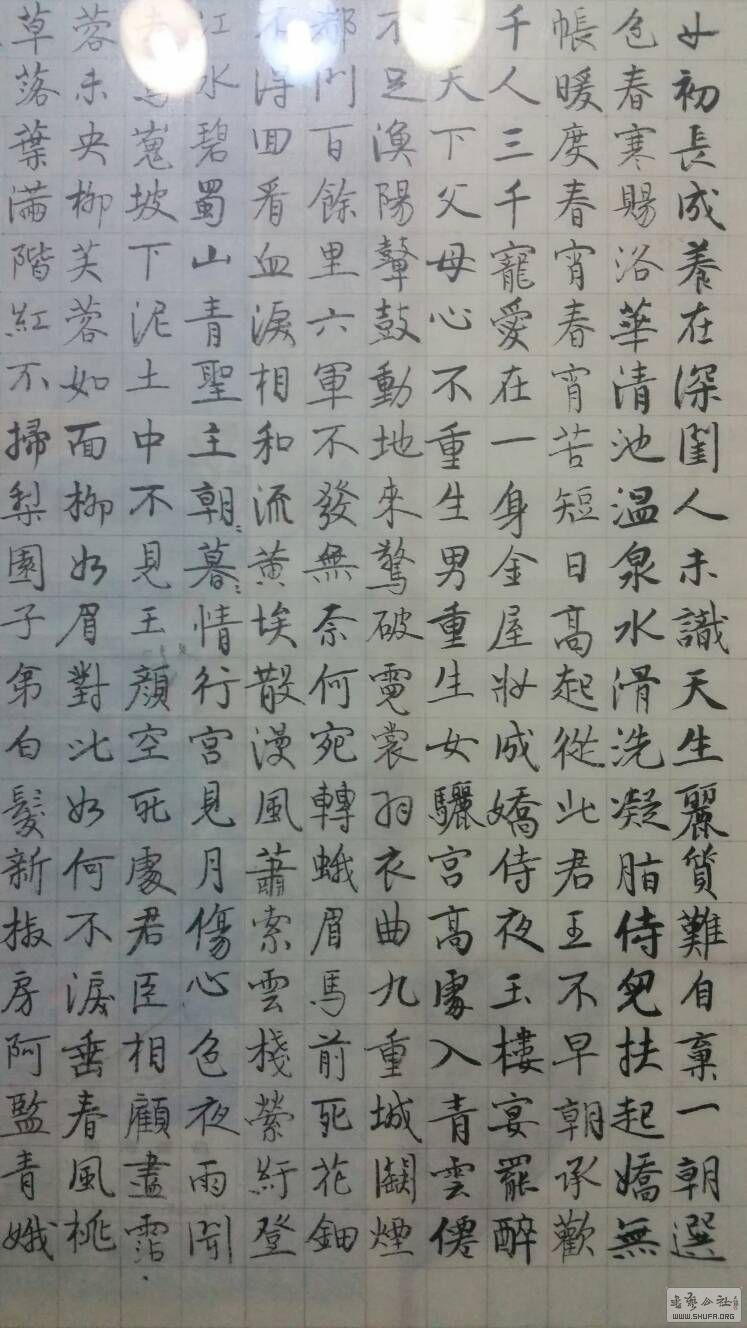 女初長成養在深閨人未識天生麗質難自棄一朝選
色春寒賜浴華清池温泉水滑洗凝脂侍兒扶起嬌無
帳暖度春宵春宵苦短日高起從此君王不早朝承歡
千人三千寵愛在一身金屋妝成嬌侍夜玉樓宴罷醉
天下父母心不重生男重生女驪宮高處入青雲僊
不足漁陽鼙鼓動地來驚破霓裳羽衣曲九重城闕煙
都門百餘里六軍不發無奈何宛轉蛾眉馬前死花鈿
不得回看血淚相和流黄埃散漫風蕭索雲棧縈紆登
江水碧蜀山青聖主朝〻暮〻情行宮見月傷心色夜雨聞
馬嵬坡下泥土中不見玉顏空死處君臣相顧盡霑
蓉未央柳芙蓉如面柳如眉對此如何不淚垂春風桃
草落葉滿階紅不掃梨園子第白髮新椒房阿監青娥
书法公社
WWW.SHUFA.ORG